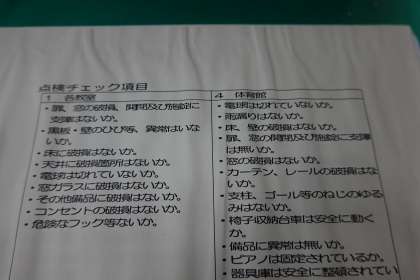 点検チェック項目
1 各教室
・扉、窓の破損、開閉及び施錠に
支障はないか。
・黒板・壁のひび等、異常はいな
いか。
・床に破損はないか。
・天井に破損箇所はないか。
・電球は切れていないか。
・窓ガラスに破損はないか。
・その他備品に破損はないか。
・コンセントの破損はないか。
・危険なフック等ないか。
4 体育館
・電球は切れていないか。
・雨漏りはないか。
・床、壁の破損はないか。
・扉、窓の開閉及び施錠に支障
は無いか。
・窓の破損はないか。
・カーテン、レールの破損はな
いか。
・支柱、ゴール等のねじのゆる
みはないか。
・椅子収納台車は安全に動く
か。
・備品に異常は無いか。
・ピアノは固定されているか。
・器具庫は安全に整頓されてい